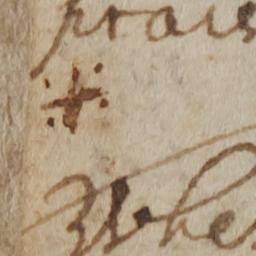 prais
Whe